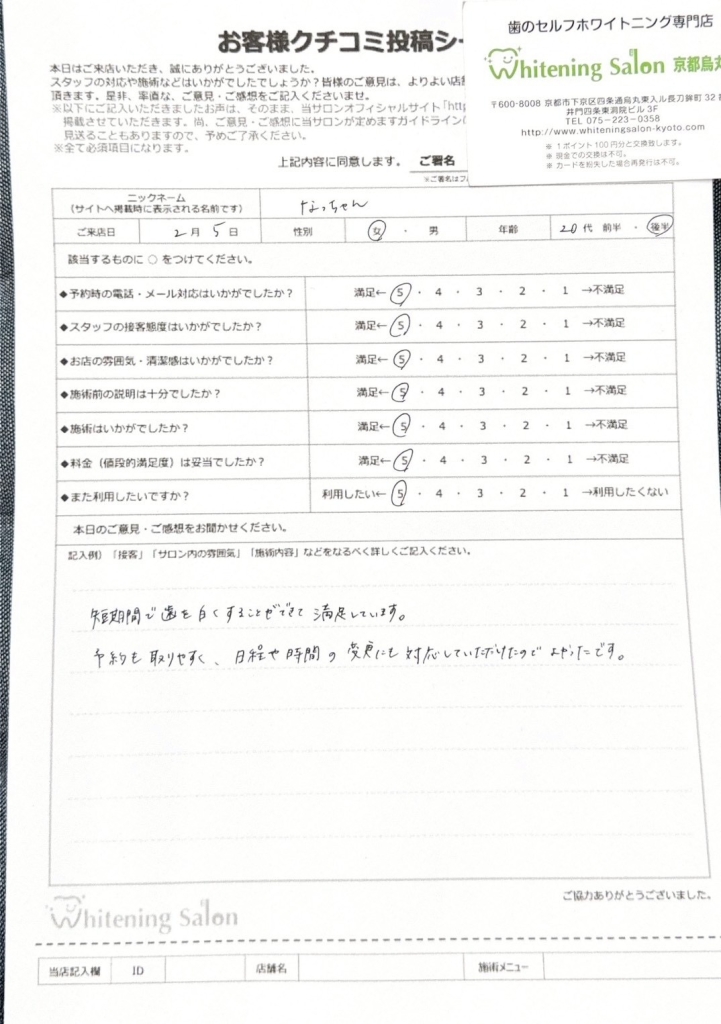 お客様クチコミ投稿シー
本日はご来店いただき、誠にありがとうございました。
スタッフの対応や施術などはいかがでしたでしょうか？皆様のご意見は、よりよい店舗
頂きます。是非、率直な、ご意見・ご感想をご記入くださいませ。
※以下にご記入いただきましたお声は、そのまま、当サロンオフィシャルサイト「http
掲載させていただきます。尚、ご意見・ご感想に当サロンが定めますガイドライン
見送ることもありますので、予めご了承ください。
※全て必須項目になります。
上記内容に同意します。 ご署名
※ご署名はフ
歯のセルフホワイトニング専門店
Whitening Salon 京都烏丸
〒600-8008 京都市下京区四条通烏丸東入ル長刀鉾町 32
井門四条東洞院ビル 3F
TEL 075-223-0358
http://www.whiteningsalon-kyoto.com
※ 1ポイント 100円分と交換致します。
※ 現金での交換は不可。
※ カードを紛失した場合再発行は不可。
ニックネーム
（サイトへ掲載時に表示される名前です） なっちゃん
ご来店日 2月 5日 性別 女 ・ 男 年齢 20代 前半 ・ 後半
該当するものに ○ をつけてください。
◆予約時の電話・メール対応はいかがでしたか？ 満足← 5 ・ 4 ・ 3 ・ 2 ・ 1 →不満足
◆スタッフの接客態度はいかがでしたか？ 満足← 5 ・ 4 ・ 3 ・ 2 ・ 1 →不満足
◆お店の雰囲気・清潔感はいかがでしたか？ 満足← 5 ・ 4 ・ 3 ・ 2 ・ 1 →不満足
◆施術前の説明は十分でしたか？ 満足← 5 ・ 4 ・ 3 ・ 2 ・ 1 →不満足
◆施術はいかがでしたか？ 満足← 5 ・ 4 ・ 3 ・ 2 ・ 1 →不満足
◆料金（値段的満足度）は妥当でしたか？ 満足← 5 ・ 4 ・ 3 ・ 2 ・ 1 →不満足
◆また利用したいですか？ 利用したい← 5 ・ 4 ・ 3 ・ 2 ・ 1 →利用したくない
本日のご意見・ご感想をお聞かせください。
記入例）「接客」「サロン内の雰囲気」「施術内容」などをなるべく詳しくご記入ください。
短期間で歯を白くすることができて満足しています。
予約も取りやすく、日程や時間の変更にも対応していただけたのでよかったです。
ご協力ありがとうございました。
Whitening Salon
当店記入欄 ID 店舗名 施術メニュー